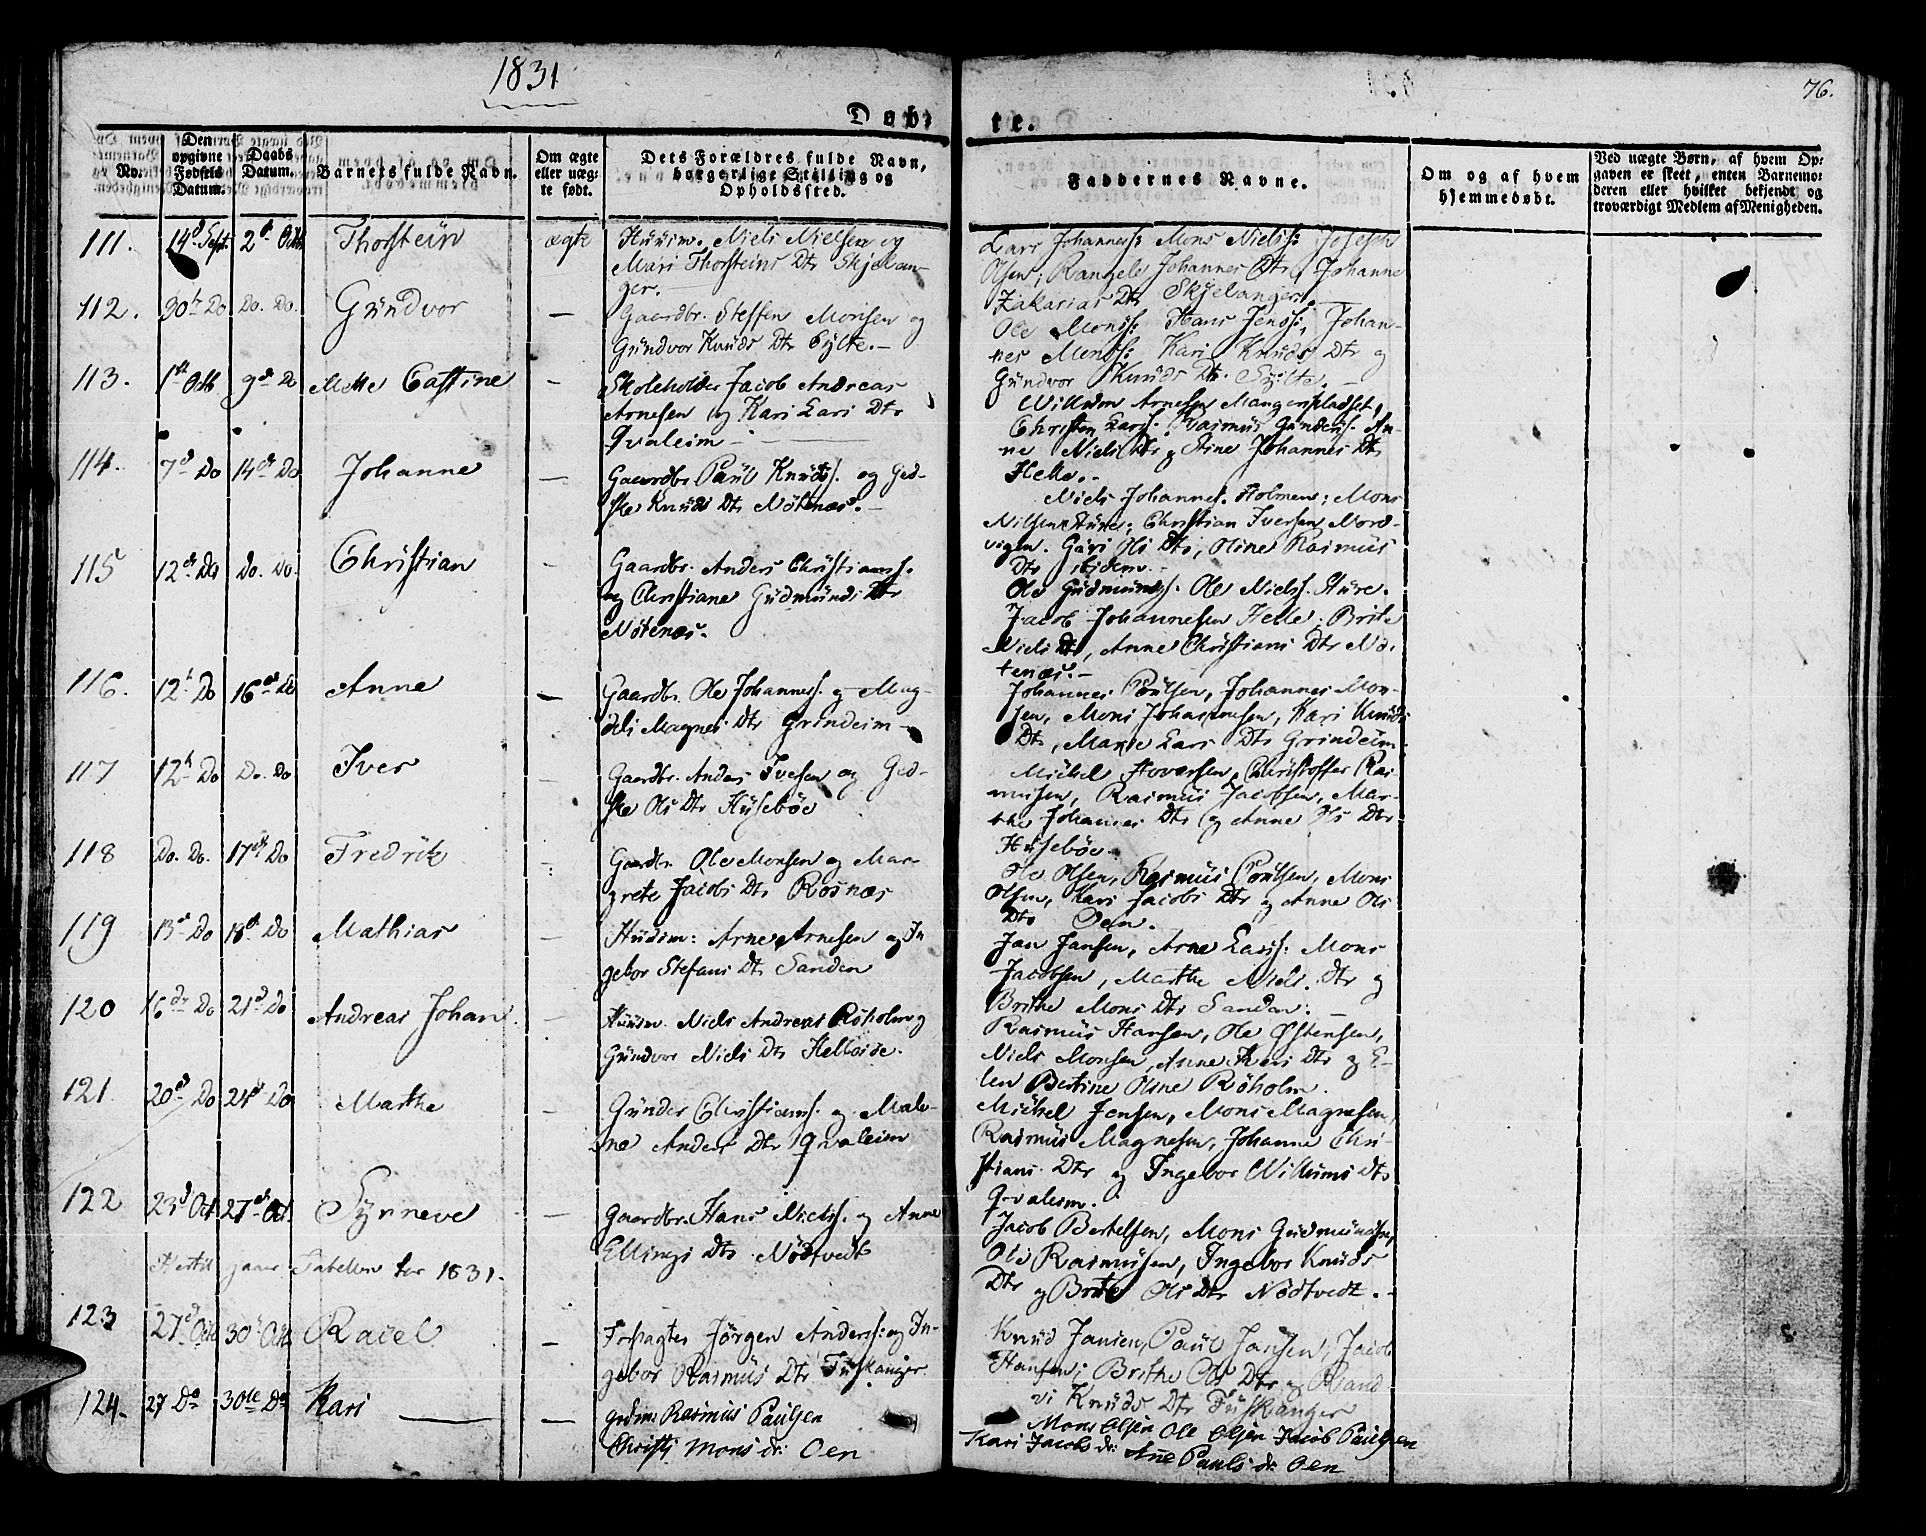 1831
76.
Døb-
te.
No.
Den opgivne Fødsels Datum.
Daabs Datum.
Barnets fulde Navn.
Om ægte eller uægte født.
Dets Forældres fulde Navn, borgerlige Stilling og Opholdssted.
Faddernes Navne.
Om og af hvem hjemmedøbt.
Ved uægte Børn, af hvem Opgaven er skeet, enten Barnemoderen eller hvilket bekjendt og troværdigt Medlem af Menigheden.
111. 14d Sept. 2d Octb. Thorstein ægte
Huusm. Niels Nielsen og
Mari Thorsteins Dtr Skjelan-
ger.
Lars Johanness: Mons Nielss: Joseph
Olsen; Rangele Johannes Dtr, Johanne
Zakarias Dtr Skjelanger.
112. 30te Do Do. Do. Gündvor —
Gaardbr. Steffen Monsen og
Gündvor Knüds Dtr Sylte.—
Ole Monss: Hans Jenss; Johan-
nes Monss: Kari Knüds Dtr og
Gündvor Knüds Dtr. Sylte.—
113. 1ste Octb 9de Do Mette Castine —
Skoleholder Jacob Andreas
Arnesen og Kari Lars Dtr
Qvaleim —
Willum Arnesen Mangerspladset,
Christen Larss. Rasmus Gunders. An-
ne Niels Dtr og Stine Johannes Dtr
Helle.-
114. 7d Do 14de Do Johanne —
Gaardbr Paül Knüds. og Ged-
ske Knüds Dtr Nøtenæs.—
Niels Johannes. Holmen; Mons
Nilsen Stüre; Christian Iversen Nord-
vigen. Güri Ols Dtr, Oline Rasmüs
Dtr ibidem.-
115 12de Do Do. Do. Christian —
Gaardbr. Anders Christians.
og Christiane Güdmünds Dtr
Nøtenæs.
Ole Güdmünds. Ole Niels. Stüre.
Jacob Johannesen Helle; Brite
Niels Dtr, Anne Christians Dtr Nø-
tenæs.-
116. 12te Do 16de Do Anne —
Gaardbr. Ole Johanness. og Mag-
deli Magnes Dtr Grindeim —
Johannes Poülsen, Johannes Mon-
sen, Mons Johannesen, Kari Knüds
Dtr, Marie Lars Dtr Grindeim
117 12te Do Do. Do Iver
Gaardbr. Anders Ivesen og Ged-
ske Ols Dtr Hüsebøe
Michel Hoversen, Christoffer Ras-
müsen, Rasmüs Jacobsen, Mar-
the Johannes Dtr og Anne Ols Dtr
Hüsebøe.
118 Do. Do. 17de Do Fredrik
Gaardbr. Ole Monsen og Mar-
grete Jacobs Dtr Rosnæs
Ole Olsen, Rasmüs Poülsen, Mons
Olsen, Kari Jacobs Dtr og Anne Ols
Dtr Oen.
119 13de Do 18de Do Mathias —
Huüsm: Arne Arnesen og In
gebor Stefans Dtr Sanden
Jan Jansen, Arne Larss: Mons
Jacobsen, Marthe Niels. Dtr og
Brithe Mons Dtr Sanden: —
120 16de Do 21de Do Andreas Johan —
Huusm. Niels Andreas Røholm og
Gündvor Niels Dtr Helleside.
Rasmüs Hansen, Ole Østensen,
Niels Monsen, Anne Dtr og E-
len Bertine Oline Røholm.
121 20de Do 24de Do Marthe —
Günder Christians. og Male-
ne Anders Dtr Qvaleim
Michel Jensen, Mons Magnesen,
Rasmüs Magnesen, Johanne Chri-
stians Dtr og Ingebor Willums Dtr
Qvaleim.
122 23d Oct. 27de Oct. Synneve —
Gaardbr. Hans Niels. og Anne
Ellings Dtr. Nødtvedt
Jacob Bertelsen, Mons Güdmündsen,
Ole Rasmüsen, Ingebor Knüds
Dtr og Brite Ols Dtr Nødtvedt.-
Hertil gaaer Tabellen for 1831.
123 27d Octb 30te Octb Raiel —
Forpagter Jörgen Anderss: og In-
gebor Rasmüs Dtr. Tüskanger
Knüd Jansen, Paül Jansen, Jacob
Hansen; Brithe Ols Dtr og Rand
vi Knüds Dtr Tüskanger
124. 27 Do 30te Do Kari — —
grdm: Rasmüs Paülsen
Christj Mons dr: Oen
Mons Olsen Ole Olsen Jacob Paülsen
Kari Jacobs dr: Ane Pauls dr Oen